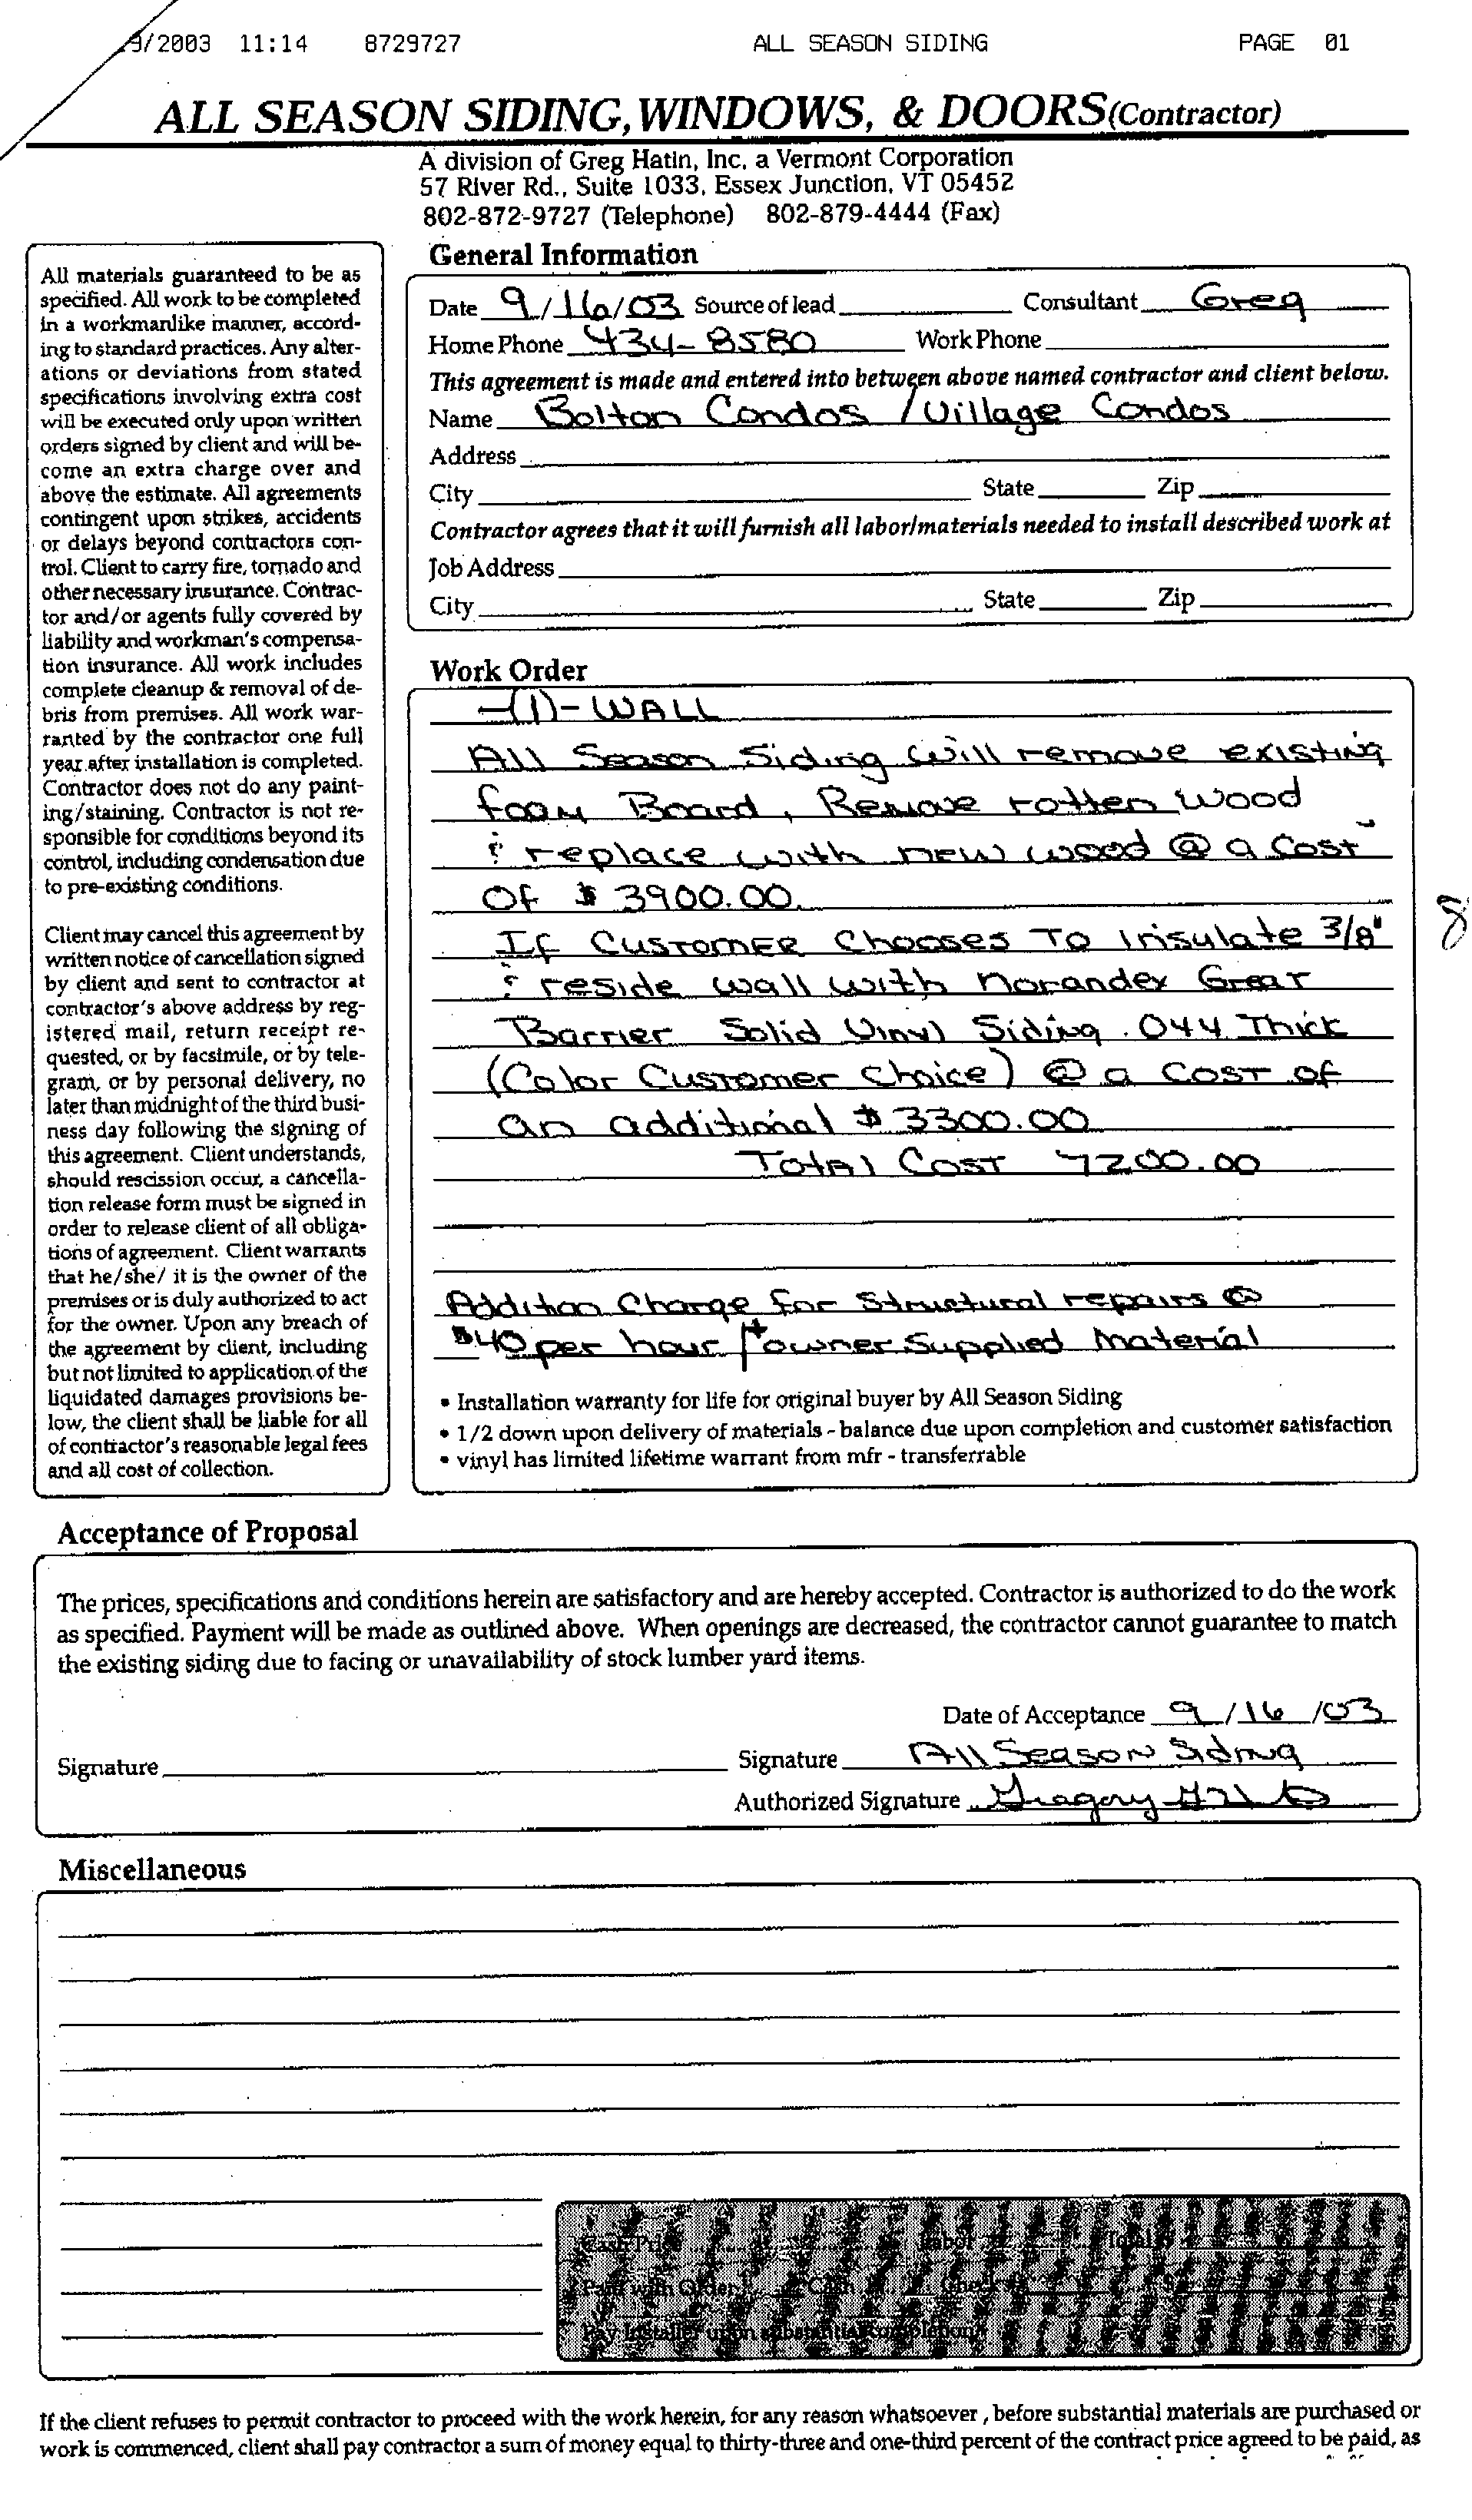 9/2003 11:14 8729727 ALL SEASON SIDING PAGE 01
ALL SEASON SIDING, WINDOWS, & DOORS (Contractor)
A division of Greg Hatin, Inc. a Vermont Corporation
57 River Rd., Suite 1033, Essex Junction, VT 05452
802-872-9727 (Telephone) 802-879-4444 (Fax)
All materials guaranteed to be as
specified. All work to be completed
in a workmanlike manner, accord-
ing to standard practices. Any alter-
ations or deviations from stated
specifications involving extra cost
will be executed only upon written
orders signed by client and will be-
come an extra charge over and
above the estimate. All agreements
contingent upon strikes, accidents
or delays beyond contractors con-
trol. Client to carry fire, tornado and
other necessary insurance. Contrac-
tor and/or agents fully covered by
liability and workman's compensa-
tion insurance. All work includes
complete cleanup & removal of de-
bris from premises. All work war-
ranted by the contractor one full
year after installation is completed.
Contractor does not do any paint-
ing/staining. Contractor is not re-
sponsible for conditions beyond its
control, including condensation due
to pre-existing conditions.
Client may cancel this agreement by
written notice of cancellation signed
by client and sent to contractor at
contractor's above address by reg-
istered mail, return receipt re-
quested, or by facsimile, or by tele-
gram, or by personal delivery, no
later than midnight of the third busi-
ness day following the signing of
this agreement. Client understands,
should rescission occur, a cancella-
tion release form must be signed in
order to release client of all obliga-
tions of agreement. Client warrants
that he/she/ it is the owner of the
premises or is duly authorized to act
for the owner. Upon any breach of
the agreement by client, including
but not limited to application of the
liquidated damages provisions be-
low, the client shall be liable for all
of contractor's reasonable legal fees
and all cost of collection.
General Information
Date 9/16/03 Source of lead Consultant Greg
Home Phone 434-8580 Work Phone
This agreement is made and entered into between above named contractor and client below.
Name Bolton Condos / Village Condos
Address
City State Zip
Contractor agrees that it will furnish all labor/materials needed to install described work at
Job Address
City State Zip
Work Order
-(1)- WALL
All Season Siding will remove existing
foam Board, Remove rotten wood
& replace with new wood @ a Cost
Of $ 3900.00
If CUSTOMER Chooses To Insulate 3/8"
& reside wall with Norandex Great
Barrier Solid Vinyl Siding .044 Thick
(Color Customer Choice) @ a COST of
an additional $ 3300.00
Total COST 7200.00
Addition Charge for Structural repairs @
$40 per hour + owner Supplied Material
• Installation warranty for life for original buyer by All Season Siding
• 1/2 down upon delivery of materials - balance due upon completion and customer satisfaction
• vinyl has limited lifetime warrant from mfr - transferrable
Acceptance of Proposal
The prices, specifications and conditions herein are satisfactory and are hereby accepted. Contractor is authorized to do the work
as specified. Payment will be made as outlined above. When openings are decreased, the contractor cannot guarantee to match
the existing siding due to facing or unavailability of stock lumber yard items.
Date of Acceptance 9/16/03
Signature Signature All Season Siding
Authorized Signature Gregory
Miscellaneous
Cash Price Labor Total
Paid with Order Cash Check
Pay Installer upon substantial completion
If the client refuses to permit contractor to proceed with the work herein, for any reason whatsoever , before substantial materials are purchased or
work is commenced, client shall pay contractor a sum of money equal to thirty-three and one-third percent of the contract price agreed to be paid, as